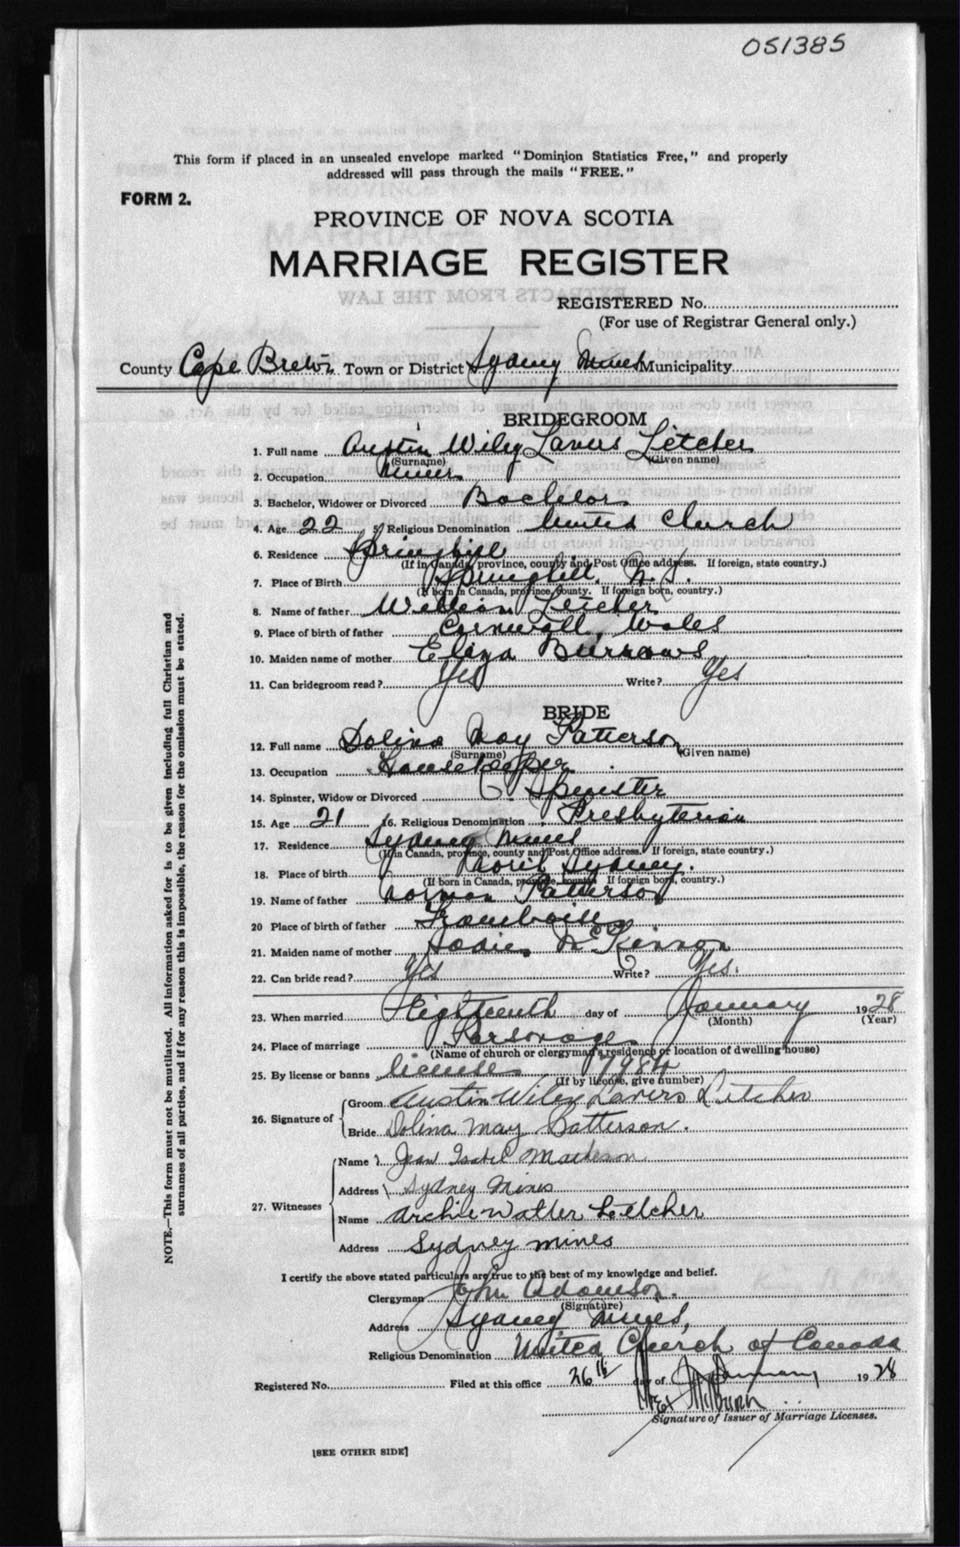 051385
This form if placed in an unsealed envelope marked "Dominion Statistics Free," and properly
addressed will pass through the mails "FREE."
FORM 2.
PROVINCE OF NOVA SCOTIA
MARRIAGE REGISTER
EXTRACTS FROM THE LAW
REGISTERED No.
(For use of Registrar General only.)
County Cape Breton Town or District Sydney Mines Municipality
BRIDEGROOM
1. Full name Austin Wiley Lavers Letcher
(Surname) (Given name)
2. Occupation Miner
3. Bachelor, Widower or Divorced Bachelor
4. Age 22 5. Religious Denomination United Church
6. Residence Springhill
(If in Canada, province, county and Post Office address. If foreign, state country.)
7. Place of Birth Springhill, N.S.
(If born in Canada, province, county. If foreign born, country.)
8. Name of father William Letcher
9. Place of birth of father Cornwall, Wales
10. Maiden name of mother Eliza Burrows
11. Can bridegroom read? Yes Write? Yes
BRIDE
12. Full name Dolina May Patterson
(Surname) (Given name)
13. Occupation Housekeeper
14. Spinster, Widow or Divorced Spinster
15. Age 21 16. Religious Denomination Presbyterian
17. Residence Sydney Mines
(If in Canada, province, county and Post Office address. If foreign, state country.)
18. Place of birth North Sydney.
(If born in Canada, province, county. If foreign born, country.)
19. Name of father Norman Patterson
20 Place of birth of father Framboise
21. Maiden name of mother Sadie McKinnon
22. Can bride read? Yes Write? Yes.
23. When married Eighteenth day of January 1928
(Month) (Year)
24. Place of marriage Parsonage
(Name of church or clergyman's residence or location of dwelling house)
25. By license or banns license 7984
(If by license, give number)
26. Signature of Groom Austin Wiley Lavers Letcher
Bride Dolina May Patterson.
27. Witnesses Name Jean Isabel Matheson
Address Sydney Mines
Name Archie Walter Letcher
Address Sydney mines
I certify the above stated particulars are true to the best of my knowledge and belief.
Clergyman John Adamson.
(Signature)
Address Sydney Mines,
Religious Denomination United Church of Canada
Registered No. Filed at this office 26th day of January 1928
Signature of Issuer of Marriage Licenses.
[SEE OTHER SIDE]
NOTE.—This form must not be mutilated. All information asked for is to be given including full Christian and
surnames of all parties, and if for any reason this is impossible, the reason for the omission must be stated.